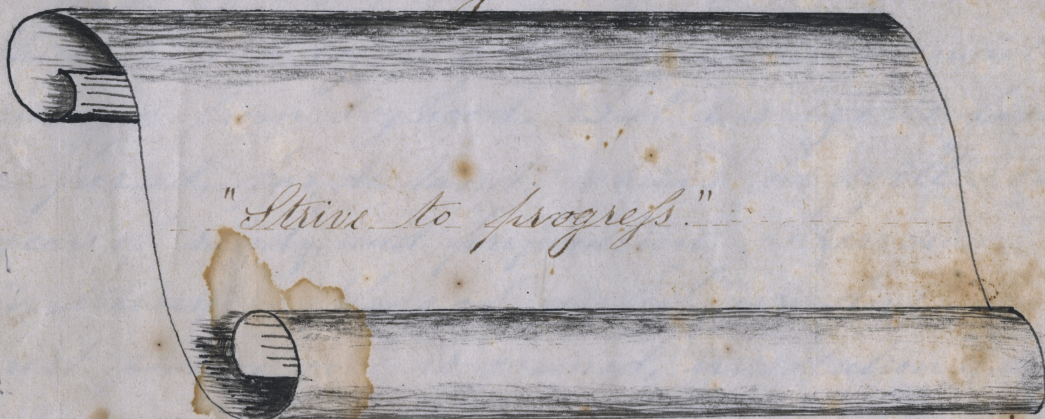 "Strive to progress."